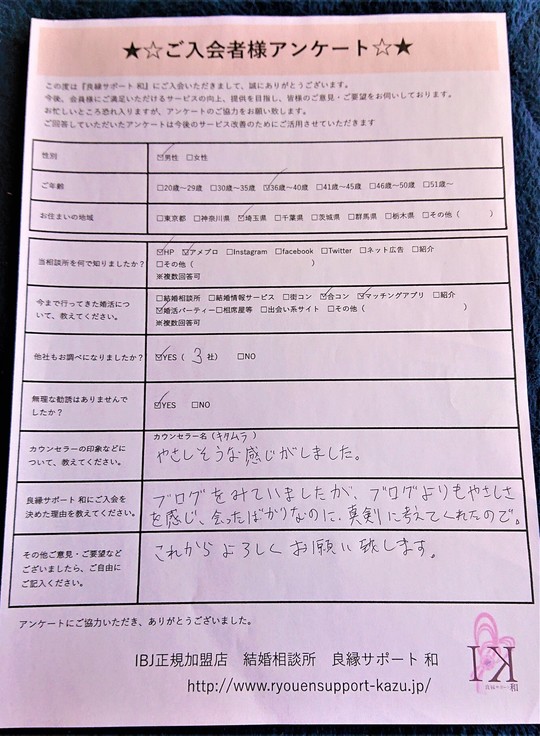 ★☆ご入会者様アンケート☆★
この度は『良縁サポート 和』にご入会いただきまして、誠にありがとうございます。
今後、会員様にご満足いただけるサービスの向上、提供を目指し、皆様のご意見・ご要望をお伺いしております。
お忙しいところ恐れ入りますが、アンケートのご協力をお願い致します。
ご回答していただいたアンケートは今後のサービス改善のためにご活用させていただきます
性別 ☑男性 □女性
ご年齢 □20歳～29歳 □30歳～35歳 ☑36歳～40歳 □41歳～45歳 □46歳～50歳 □51歳～
お住まいの地域 □東京都 □神奈川県 ☑埼玉県 □千葉県 □茨城県 □群馬県 □栃木県 □その他（ ）
当相談所を何で知りましたか？ ☑HP ☑アメブロ □Instagram □facebook □Twitter □ネット広告 □紹介
□その他（ ）
※複数回答可
今まで行ってきた婚活について、教えてください。 □結婚相談所 □結婚情報サービス □街コン ☑合コン ☑マッチングアプリ □紹介
☑婚活パーティー □相席屋等 □出会い系サイト □その他（ ）
※複数回答可
他社もお調べになりましたか？ ☑YES（ 3 社） □NO
無理な勧誘はありませんでしたか？ ☑YES □NO
カウンセラーの印象などについて、教えてください。 カウンセラー名（キタムラ）
やさしそうな感じがしました。
良縁サポート 和にご入会を決めた理由を教えてください。 ブログをみていましたが、ブログよりもやさしさ
を感じ、会ったばかりなのに、真剣に考えてくれたので。
その他ご意見・ご要望などございましたら、ご自由にご記入ください。 これからよろしくお願い致します。
アンケートにご協力いただき、ありがとうございました。
IBJ正規加盟店 結婚相談所 良縁サポート 和
http://www.ryouensupport-kazu.jp/
IK
良縁サポート 和